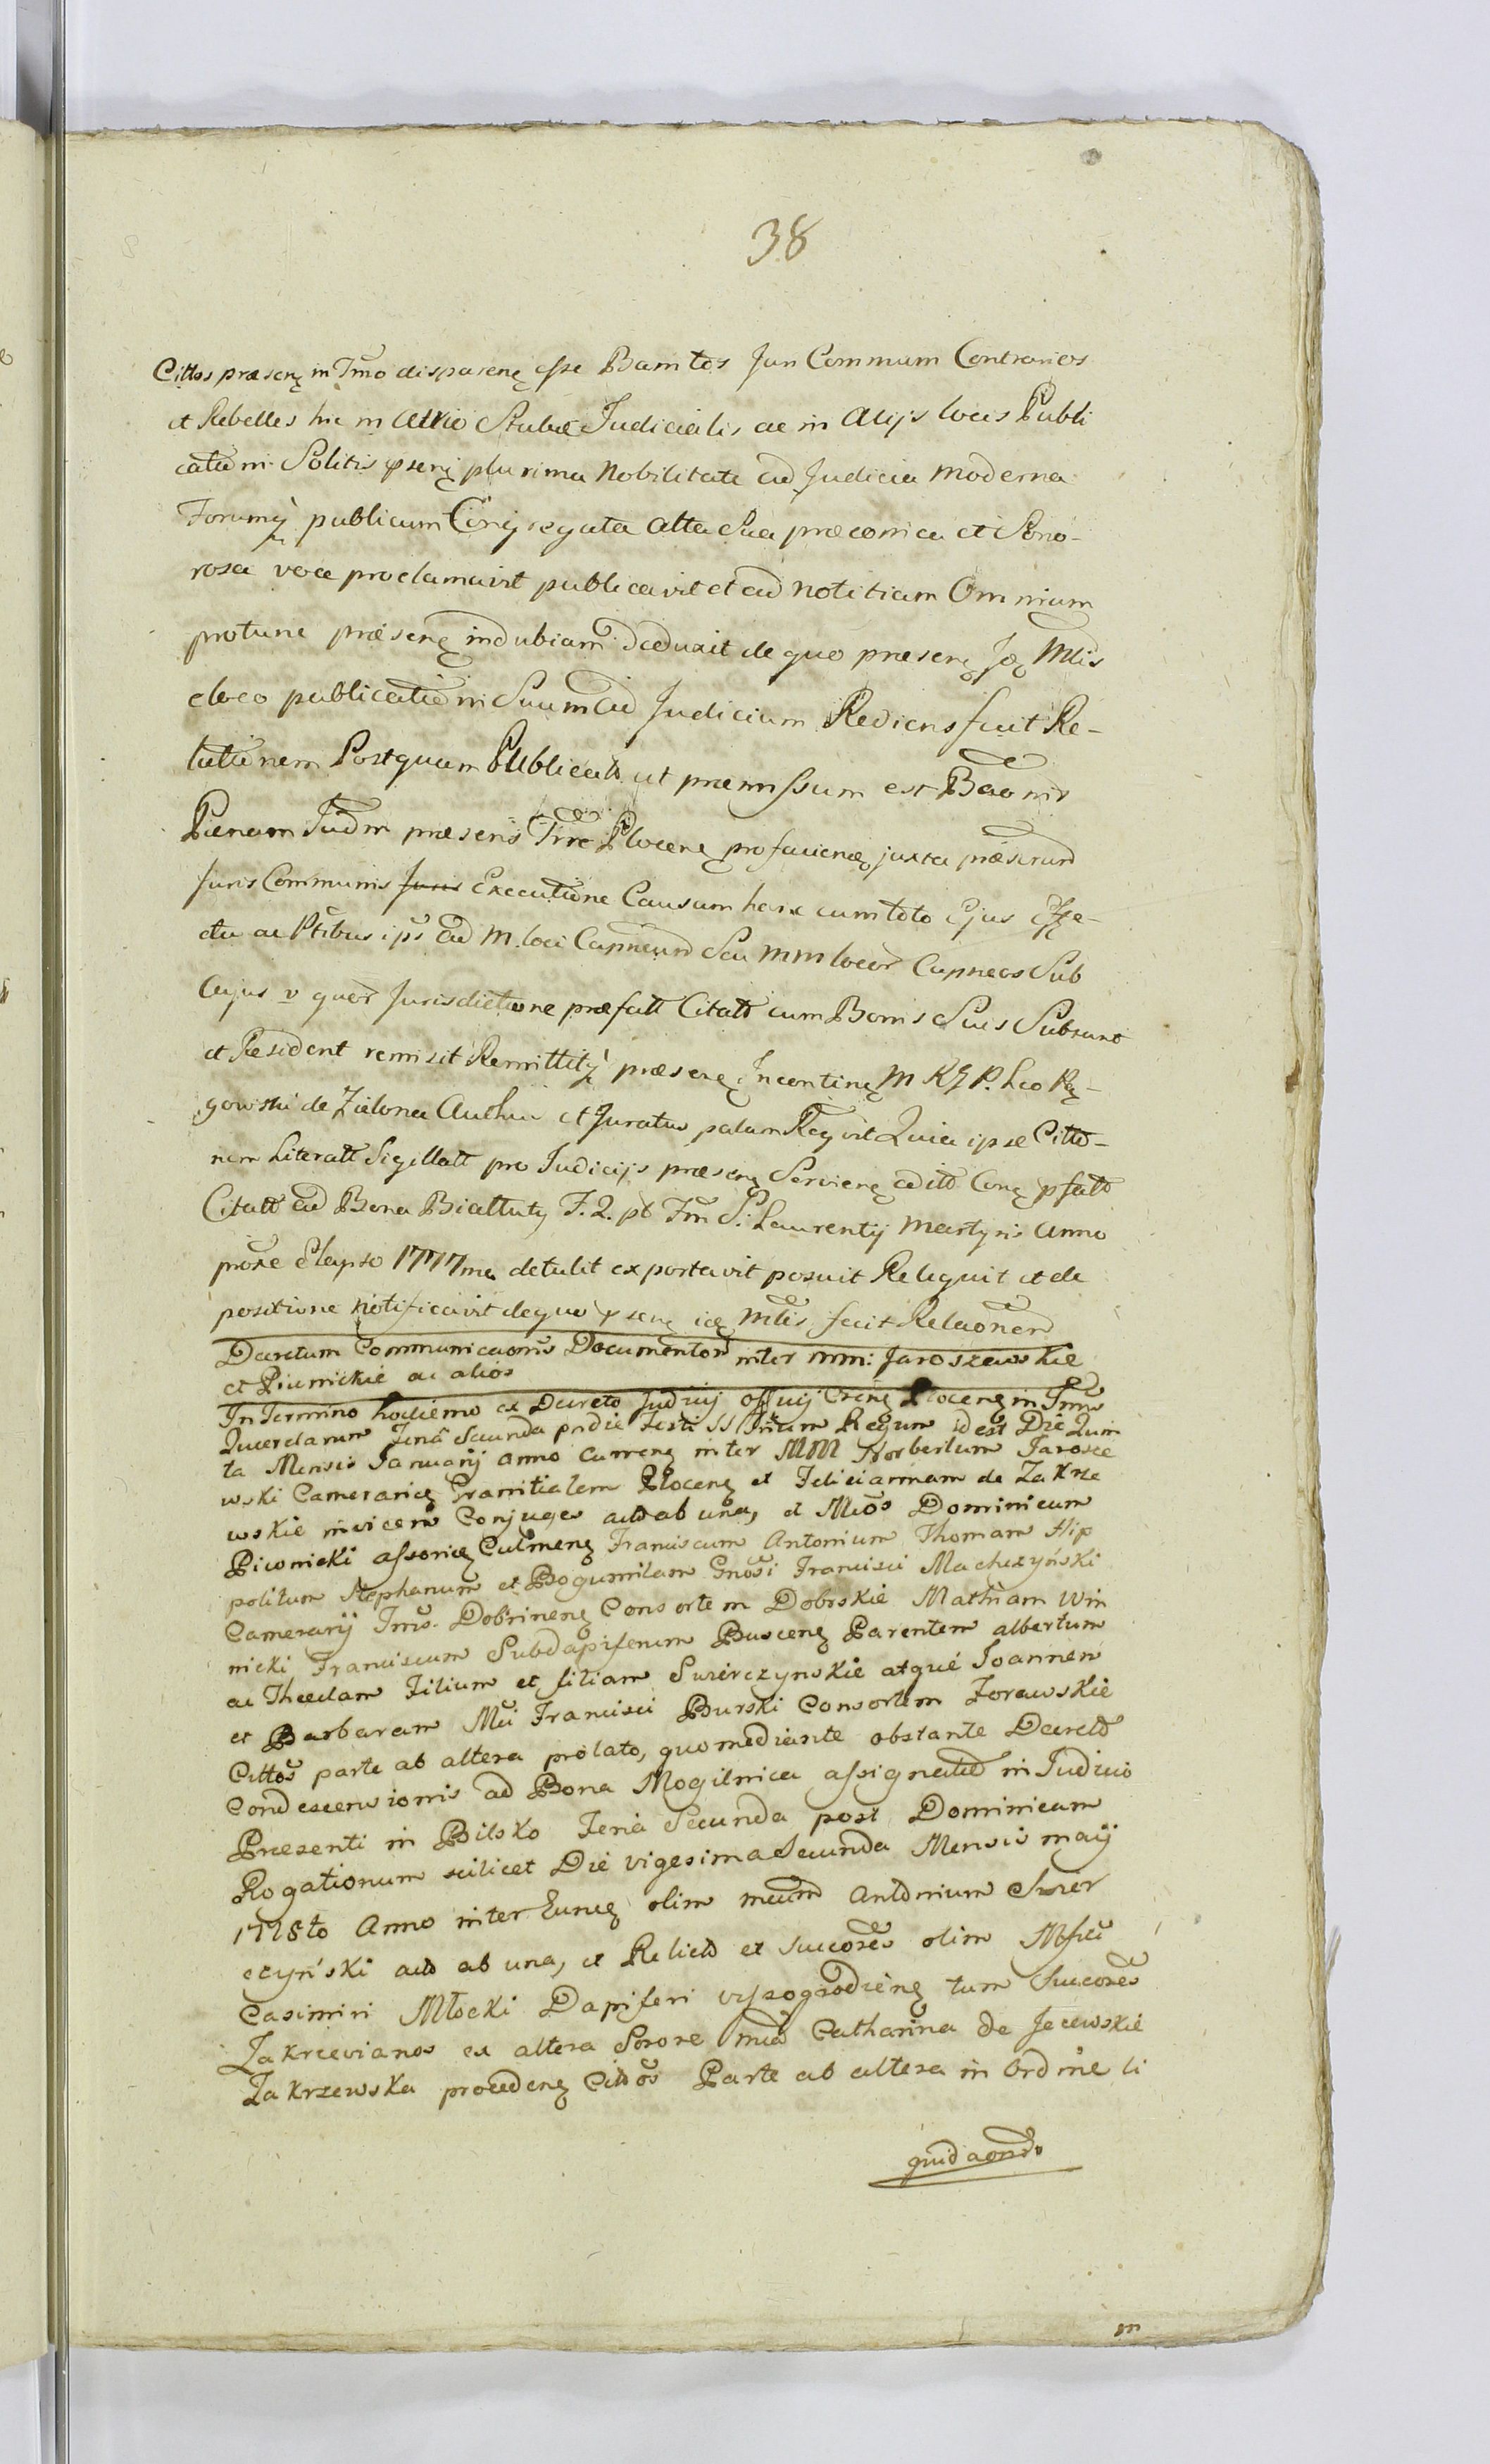 38
Cittos præsenz in Tmo disparenz esse Banitos Juri Communi Contrarios
et Rebelles hic in Atrio Stubæ Judicialis ac in Alijs locis Publi
cationi Solitis pseng plurima Nobilitate ad Judicia moderna
Forumq publicum Congregata Alta Sua præconica et Sono-
rosa voce proclamavit publicavit et ad notitiam Omnium
protunc præsenz indubiam deduxit de quo præsenz Jdz Mtlis
eloco publicationi Suum ad Judicium Rediens fecit Re-
lationem Postquam Publicato ut præmissum est Baonis
Pænam Judm præsens Trræ Plocenz pro faciendz juxta præscrand
Juris Communis Juris Executione Causam hanc cum toto Ejus Effe-
ctu ac Ptibus ips ad M. loci Capneund Seu MM locor Capneos Sub
Cujus v quor Jurisdictione præfatt Citatt cum Bonis Suis Subsunt
et Resident remisit Remittitq præsenz Incontinz M K G P. Leo Rę-
gowski de Zielona Author et Juratus palam Recgvit Quia ipse Citto-
nem Literatt Sigillatt pro Judicijs præsenz Servienz ad itt Conz pfatt
Citatt ad Bona Białłuty F. 2. pt Fm S. Laurentij Martyris Anno
proxe Elapso 1777mo detulit exportavit posuit Reliquit et de
positione Notificavit de quo pseng idz Mtlis fecit Relaonem
Decretum Communicaonis Documentor inter MM: Jaroszewskie
et Piwnickie ac alios
In Termino hodierno ex Decreto Judicij Officij Crens Plocenz in Tmo
Querelarum Feria Secunda pridie Festi SS Trium Regum id est Die Quin
ta Mensis Januarij Anno Currenz inter MM Norbertum Jarosze
wski Camerariuz Granitialem Plocenz et Feliciannam de Zakrze
wskie invicem Conjuges actt ab una, et Mcos Dominicum
Piwnicki assoriuz Culmenz Franciscum Antonium Thomam Hip
politum Stephanum et Bogumilam Gnosi Francisci Machczyński
Camerarij Trris Dobrinenz Consortem Dobrskie Mathiam Win
nicki Franciscum Subdapiferum Buscenz Parentem albertum
ac Theclam Filium et filiam Swierczynskie atque Joannem
et Barbaram Mci Francisci Burski Consortem Zorawskie
Cittos parte ab altera prolato, quo mediante obstante Decreto
Condescensionis ad Bona Mogilnica assignato in Judicio
Præsenti in Bilsko Feria Secunda post Dominicam
Rogationum scilicet Die vigesima Secunda Mensis maij
1775to Anno inter Euncz olim mcum Antonium Swier
czyński actt ab una, et Relicto et Succores olim Mfici
Casimiri Młocki Dapiferi vyszogrodienz tum Succores
Zakrzevianos ex altera Sorore mca Catharina de Jeżewskie
Zakrzewska procedenz Cittos Parte ab altera in Ordine li
quidaonis
m